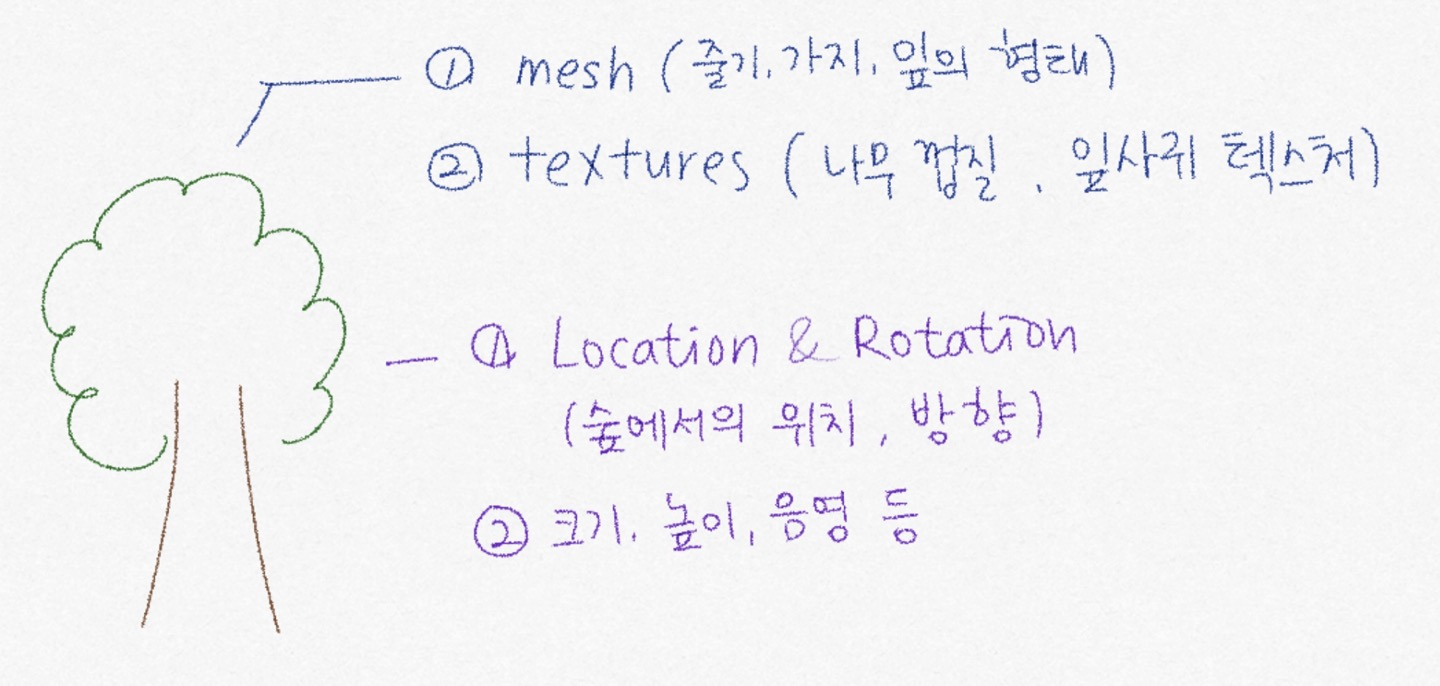 ① mesh (줄기, 가지, 잎의 형태)
② textures (나무 껍질, 잎사귀 텍스처)
① Location & Rotation
(숲에서의 위치, 방향)
② 크기, 높이, 음영 등